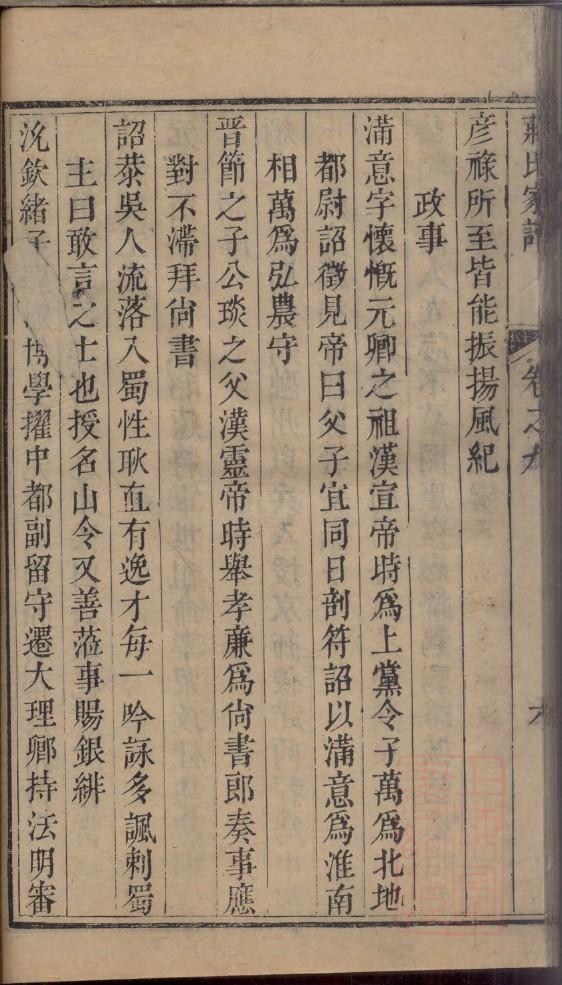 蔣氏家譜 卷之九 六
彦祿所至皆能振揚風紀
政事
滿意字懷慨元卿之祖漢宣帝時爲上黨令子萬爲北地
都尉詔徵見帝曰父子宜同日剖符詔以滿意爲淮南
相萬爲弘農守
晉節之子公琰之父漢靈帝時舉孝廉爲尙書郎奏事應
對不滯拜尙書
詔恭吳人流落入蜀性耿直有逸才每一吟詠多諷刺蜀
主曰敢言之士也授名山令又善蒞事賜銀緋
沇欽緒子博學擢中都副留守遷大理卿持法明審